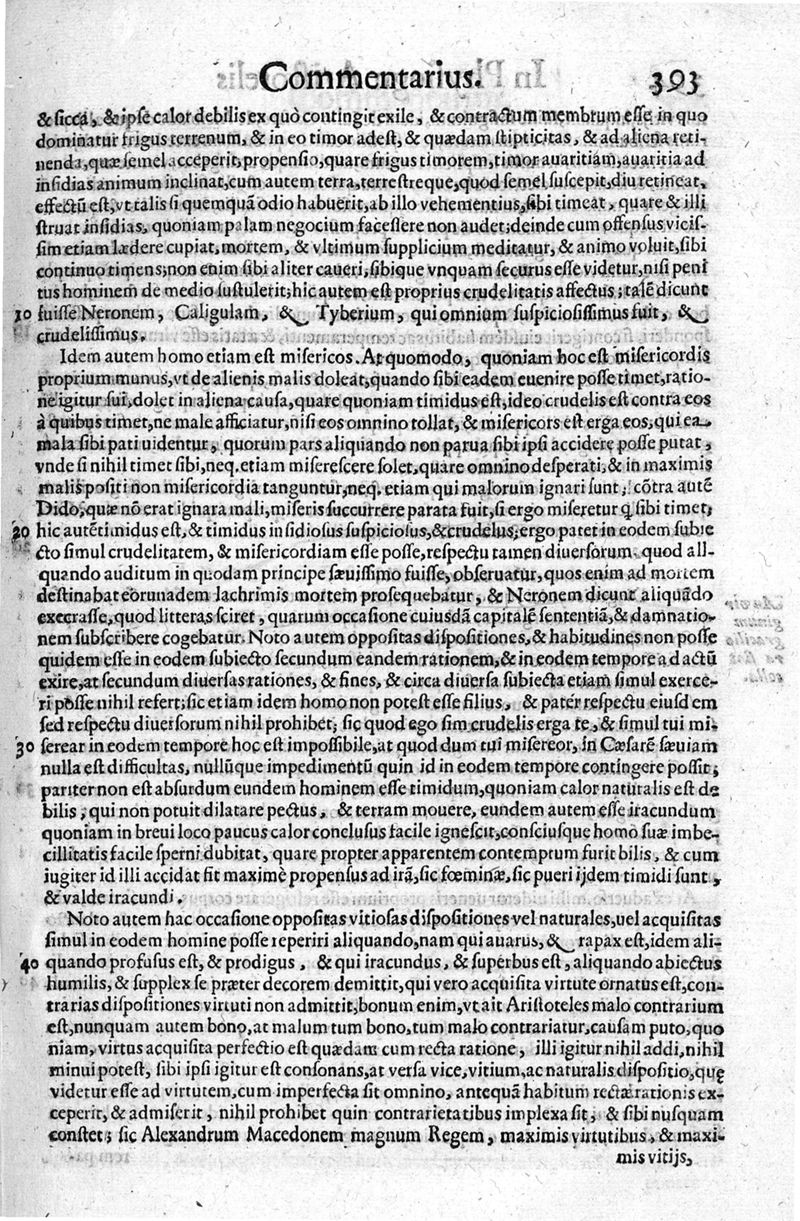 Commentarius. 393
& sicca, & ipse calor debilis ex quò contingit exile, & contractum membrum esse in quo
dominatur frigus terrenum, & in eo timor adest, & quædam stipticitas, & ad aliena reti-
nenda, quæ semel acceperit, propensio, quare frigus timorem, timor auaritiam, auaritia ad
insidias animum inclinat, cum autem terra, terrestreque, quod semel suscepit, diu retineat,
effectũ est, vt talis si quemquã odio habuerit, ab illo vehementius, sibi timeat, quare & illi
struat insidias, quoniam palam negocium facessere non audet; deinde cum offensus vicis-
sim etiam lædere cupiat, mortem, & vltimum supplicium meditatur, & animo voluit, sibi
continuo timens; non enim sibi aliter caueri, sibique vnquam securus esse videtur, nisi peni
tus hominem de medio sustulerit; hic autem est proprius crudelitatis affectus; talẽ dicunt
10 fuisse Neronem, Caligulam, & Tyberium, qui omnium suspiciosissimus fuit, &
crudelissimus.
Idem autem homo etiam est misericos. At quomodo, quoniam hoc est misericordis
proprium munus, vt de alienis malis doleat, quando sibi eadem euenire posse timet, ratio-
ne igitur sui, dolet in aliena causa, quare quoniam timidus est, ideo crudelis est contra eos
à quibus timet, ne male afficiatur, nisi eos omnino tollat, & misericors est erga eos, qui ea
mala sibi pati uidentur, quorum pars aliquando non parua sibi ipsi accidere posse putat,
vnde si nihil timet sibi, neq. etiam miserescere solet, quare omnino desperati, & in maximis
malis positi non misericordia tanguntur, neq. etiam qui malorum ignari sunt; cõtra autẽ
Dido, quæ nõ erat ignara mali, miseris succurrere parata fuit, si ergo miseretur q̃ sibi timet;
20 hic autẽ timidus est, & timidus insidiosus suspiciosus, & crudelus; ergo patet in eodem subie
cto simul crudelitatem, & misericordiam esse posse, respectu tamen diuersorum. quod ali-
quando auditum in quodam principe sæuissimo fuisse, obseruatur, quos enim ad mortem
destinabat eorunadem lachrimis mortem prosequebatur, & Neronem dicunt aliquãdo
execrasse, quod litteras sciret, quarum occasione cuiusdã capitalẽ sententiã, & damnatio-
nem subscribere cogebatur. Noto autem oppositas dispositiones, & habitudines non posse
quidem esse in eodem subiecto secundum eandem rationem, & in eodem tempore ad actũ
exire, at secundum diuersas rationes, & fines, & circa diuersa subiecta etiam simul exerce-
ri posse nihil refert; sic etiam idem homo non potest esse filius, & pater respectu eiusdem
sed respectu diuersorum nihil prohibet; sic quod ego sim crudelis erga te, & simul tui mi-
30 serear in eodem tempore hoc est impossibile, at quod dum tui misereor, in Cæsarẽ sæuiam
nulla est difficultas, nullũque impedimentũ quin id in eodem tempore contingere possit;
pariter non est absurdum eundem hominem esse timidum, quoniam calor naturalis est de
bilis; qui non potuit dilatare pectus, & terram mouere, eundem autem esse iracundum
quoniam in breui loco paucus calor conclusus facile ignescit, consciusque homo suæ imbe-
cillitatis facile sperni dubitat, quare propter apparentem contemptum furit bilis, & cum
iugiter id illi accidat fit maximè propensus ad irã, sic fœminæ, sic pueri ijdem timidi sunt,
& valde iracundi.
Noto autem hac occasione oppositas vitiosas dispositiones vel naturales, uel acquisitas
simul in eodem homine posse reperiri aliquando, nam qui auarus, & rapax est, idem ali-
40 quando profusus est, & prodigus, & qui iracundus, & superbus est, aliquando abiectus
humilis, & supplex se præter decorem demittit, qui vero acquisita virtute ornatus est, con-
trarias dispositiones virtuti non admittit, bonum enim, vt ait Aristoteles malo contrarium
est, nunquam autem bono, at malum tum bono, tum malo contrariatur, causam puto, quo
niam, virtus acquisita perfectio est quædam cum recta ratione, illi igitur nihil addi, nihil
minui potest, sibi ipsi igitur est consonans, at versa vice, vitium, ac naturalis dispositio, quę
videtur esse ad virtutem, cum imperfecta sit omnino, antequã habitum rectæ rationis ex-
ceperit, & admiserit, nihil prohibet quin contrarietatibus implexa sit, & sibi nusquam
constet; sic Alexandrum Macedonem magnum Regem, maximis virtutibus, & maxi-
mis vitijs,